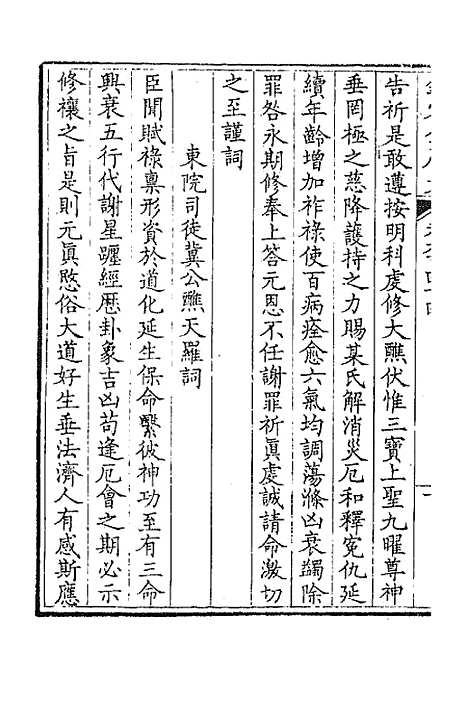 告祈是敢遵按明科虔修大醮伏惟三寶上聖九曜尊神
垂罔極之慈降護持之力賜某氏解消災厄和釋寃仇延
續年齡增加祚祿使百病痊愈六氣均調蕩滌凶衰蠲除
罪咎永期修奉上答元恩不任謝罪祈眞虔誠請命激切
之至謹詞
東院司徒冀公醮天羅詞
臣聞賦祿禀形資於道化延生保命繫彼神功至有三命
興衰五行代謝星躔經歴卦象吉凶苟逢厄會之期必示
修禳之旨是則元眞愍俗大道好生垂法濟人有感斯應